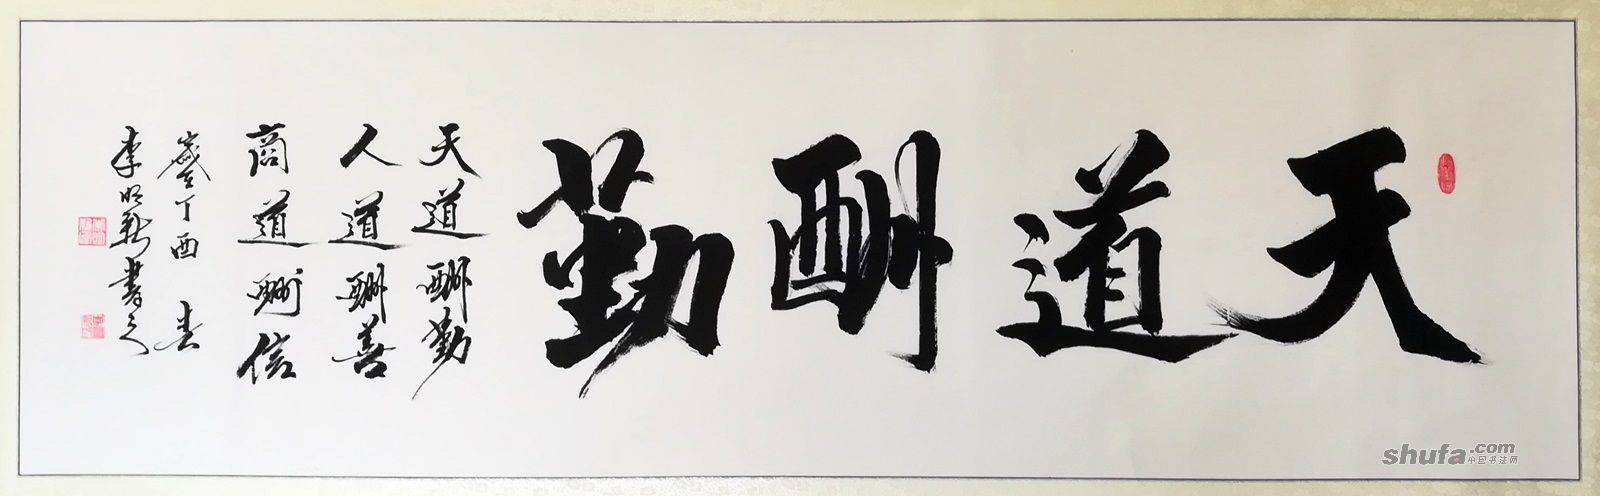 天道酬勤
天道酬勤
人道酬善
商道酬信
歲丁酉 春
李明新書之
shufa.com
中国书法网